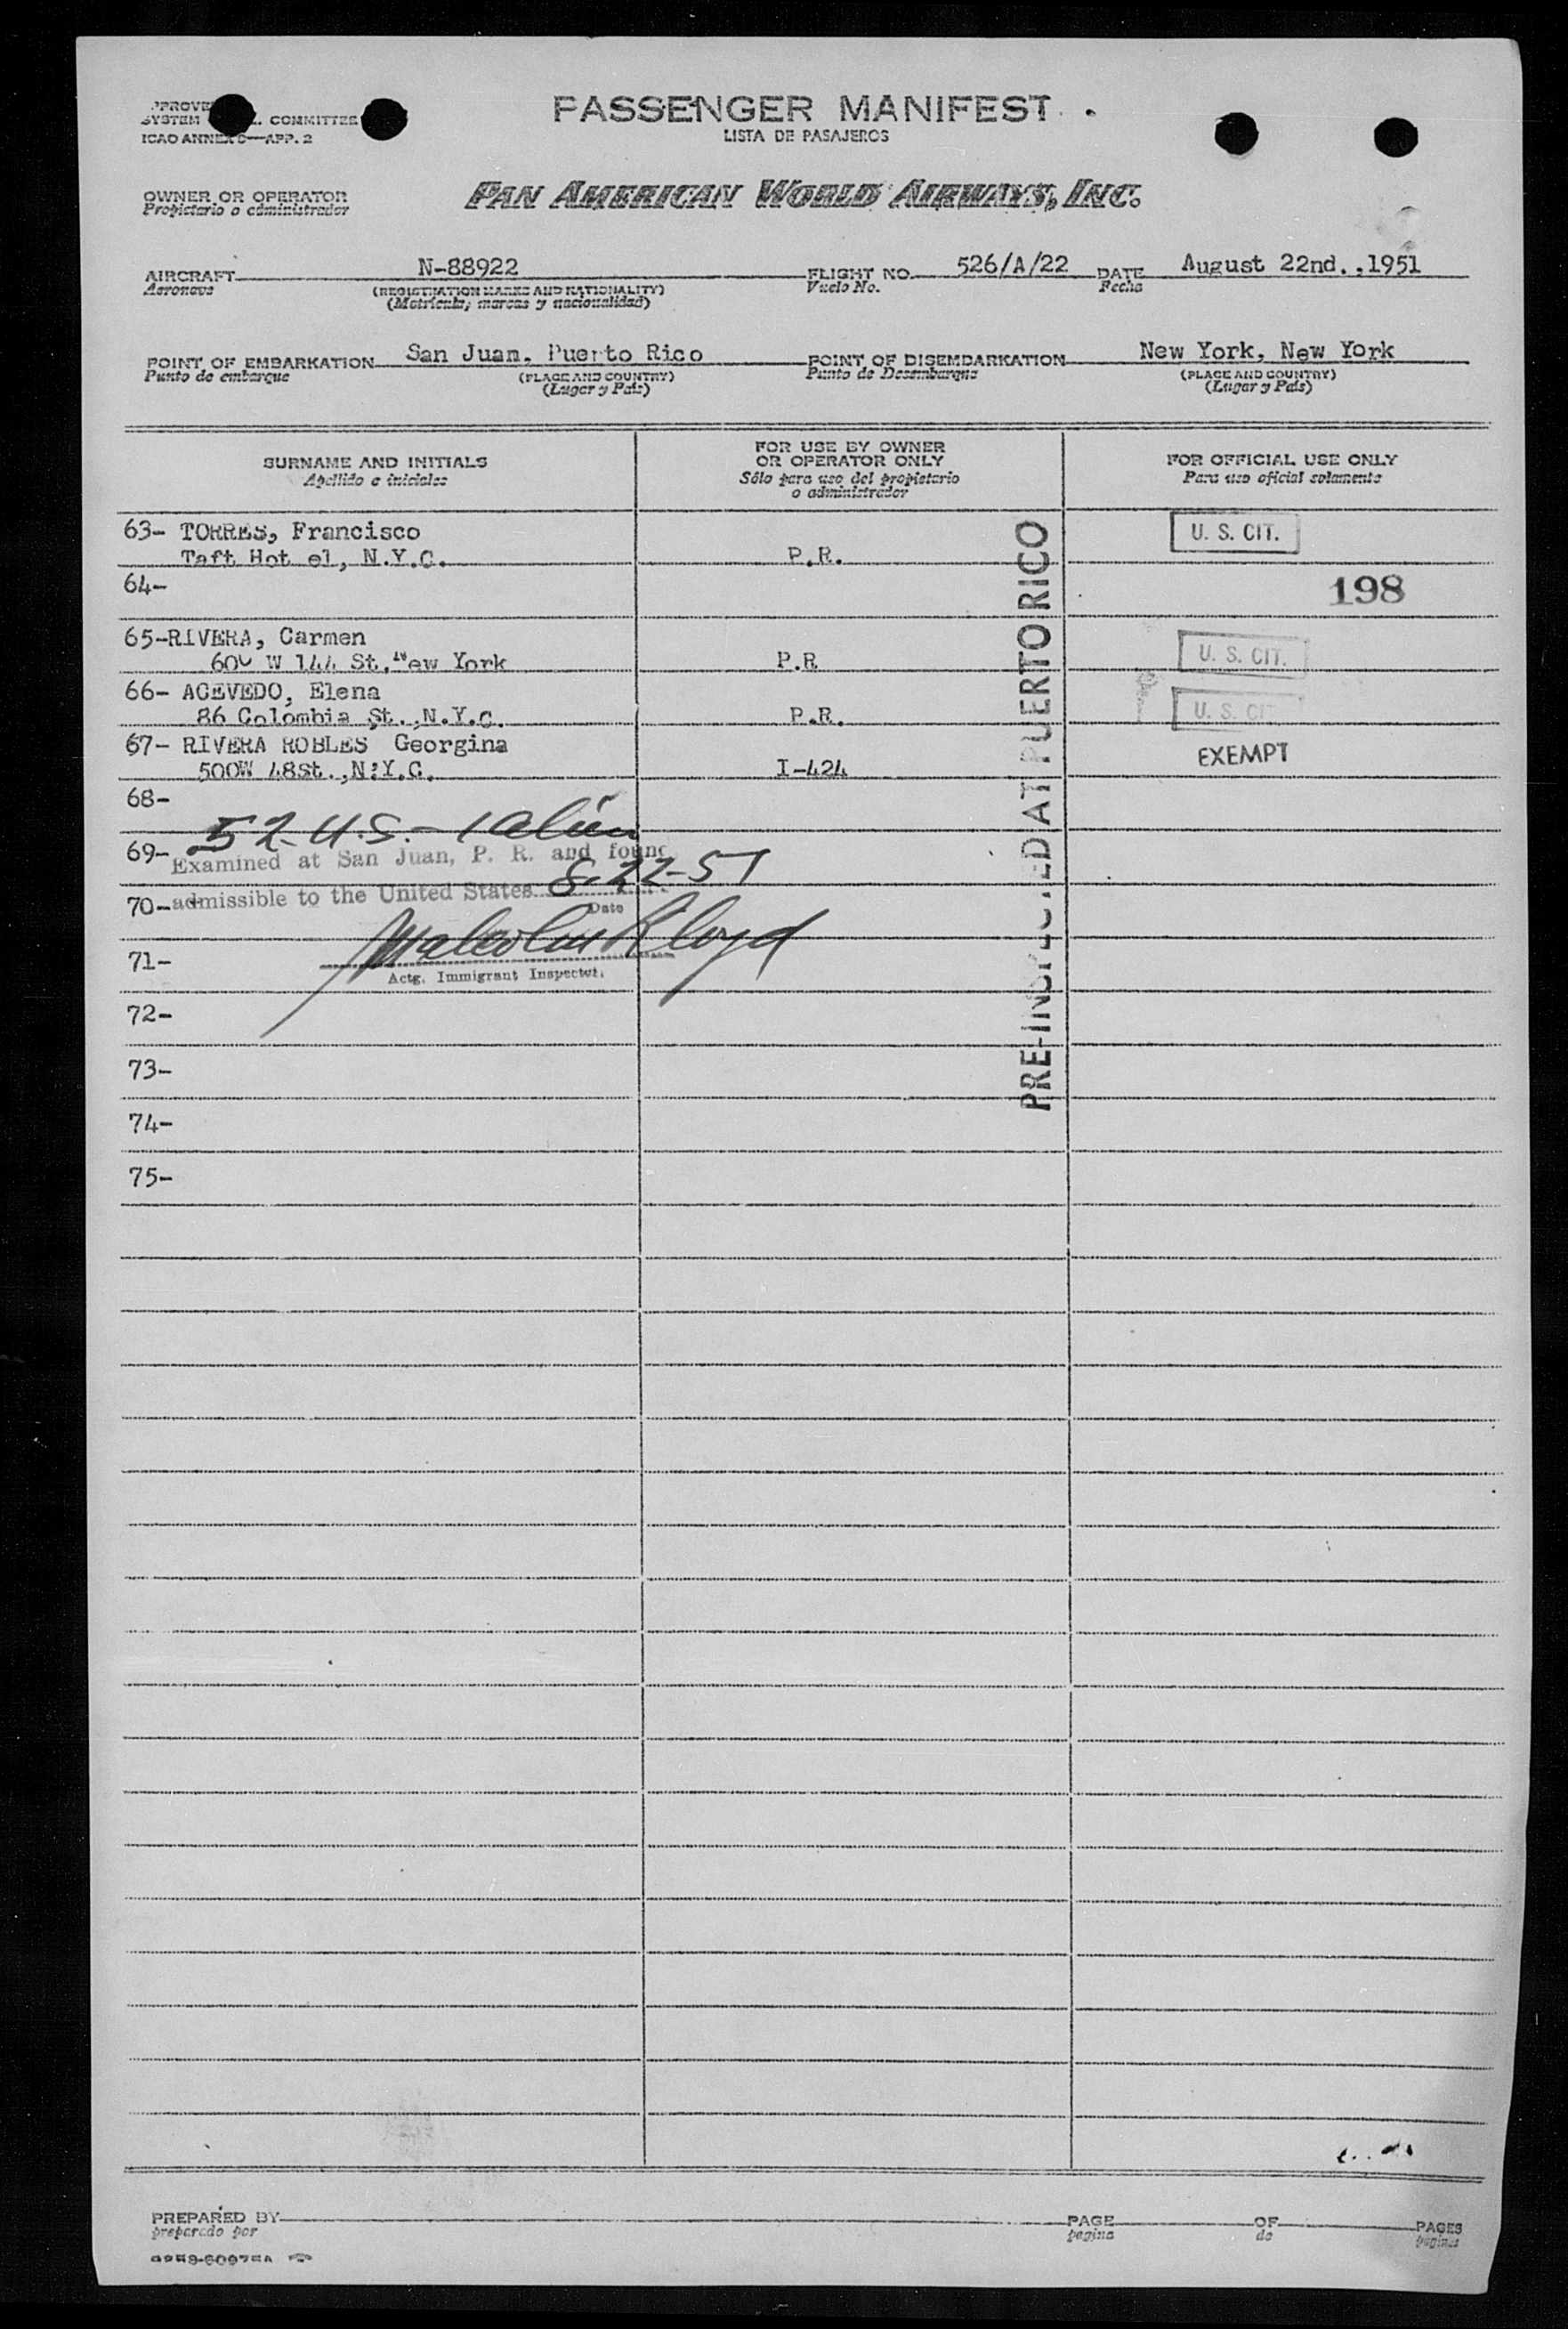 PASSENGER MANIFEST
LISTA DE PASAJEROS
SYSTEM COMMITTEE
ICAO ANNEX 9—APP. 2
OWNER OR OPERATOR
Propietario o administrador
PAN AMERICAN WORLD AIRWAYS, INC.
AIRCRAFT N-88922 FLIGHT NO. 526/A/22 DATE August 22nd.,1951
Aeronave (REGISTRATION MARKS AND NATIONALITY) Vuelo No. Fecha
(Matrícula, marcas y nacionalidad)
POINT OF EMBARKATION San Juan, Puerto Rico POINT OF DISEMBARKATION New York, New York
Punto de embarque (PLACE AND COUNTRY) Punto de Desembarque (PLACE AND COUNTRY)
(Lugar y País) (Lugar y País)
SURNAME AND INITIALS
Apellido e iniciales
FOR USE BY OWNER
OR OPERATOR ONLY
Sólo para uso del propietario
o administrador
FOR OFFICIAL USE ONLY
Para uso oficial solamente
63- TORRES, Francisco U. S. CIT.
Taft Hot el, N.Y.C. P.R.
64- 198
65-RIVERA, Carmen
W 144 St. New York P.R U. S. CIT.
66- ACEVEDO, Elena
86 Colombia St.,N.Y.C. P.R. U. S. CI
67- RIVERA ROBLES Georgina EXEMPT
500W 48st.,N:Y.C. I-424
68-
52 U.S. - 1 alien
69-
Examined at San Juan, P. R. and found
70- admissible to the United States 8-22-51
Date
Malcolm R Lloyd
71-
Actg. Immigrant Inspector.
72-
73-
74-
75-
PRE-INSPECTED AT PUERTO RICO
PREPARED BY PAGE OF PAGES
preparado por pagina de paginas